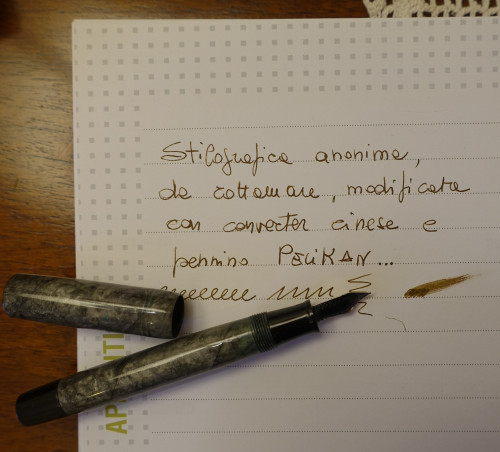 Stilografica anonima,
da rottamare, modificata
con converter cinese e
pennino PELIKAN...